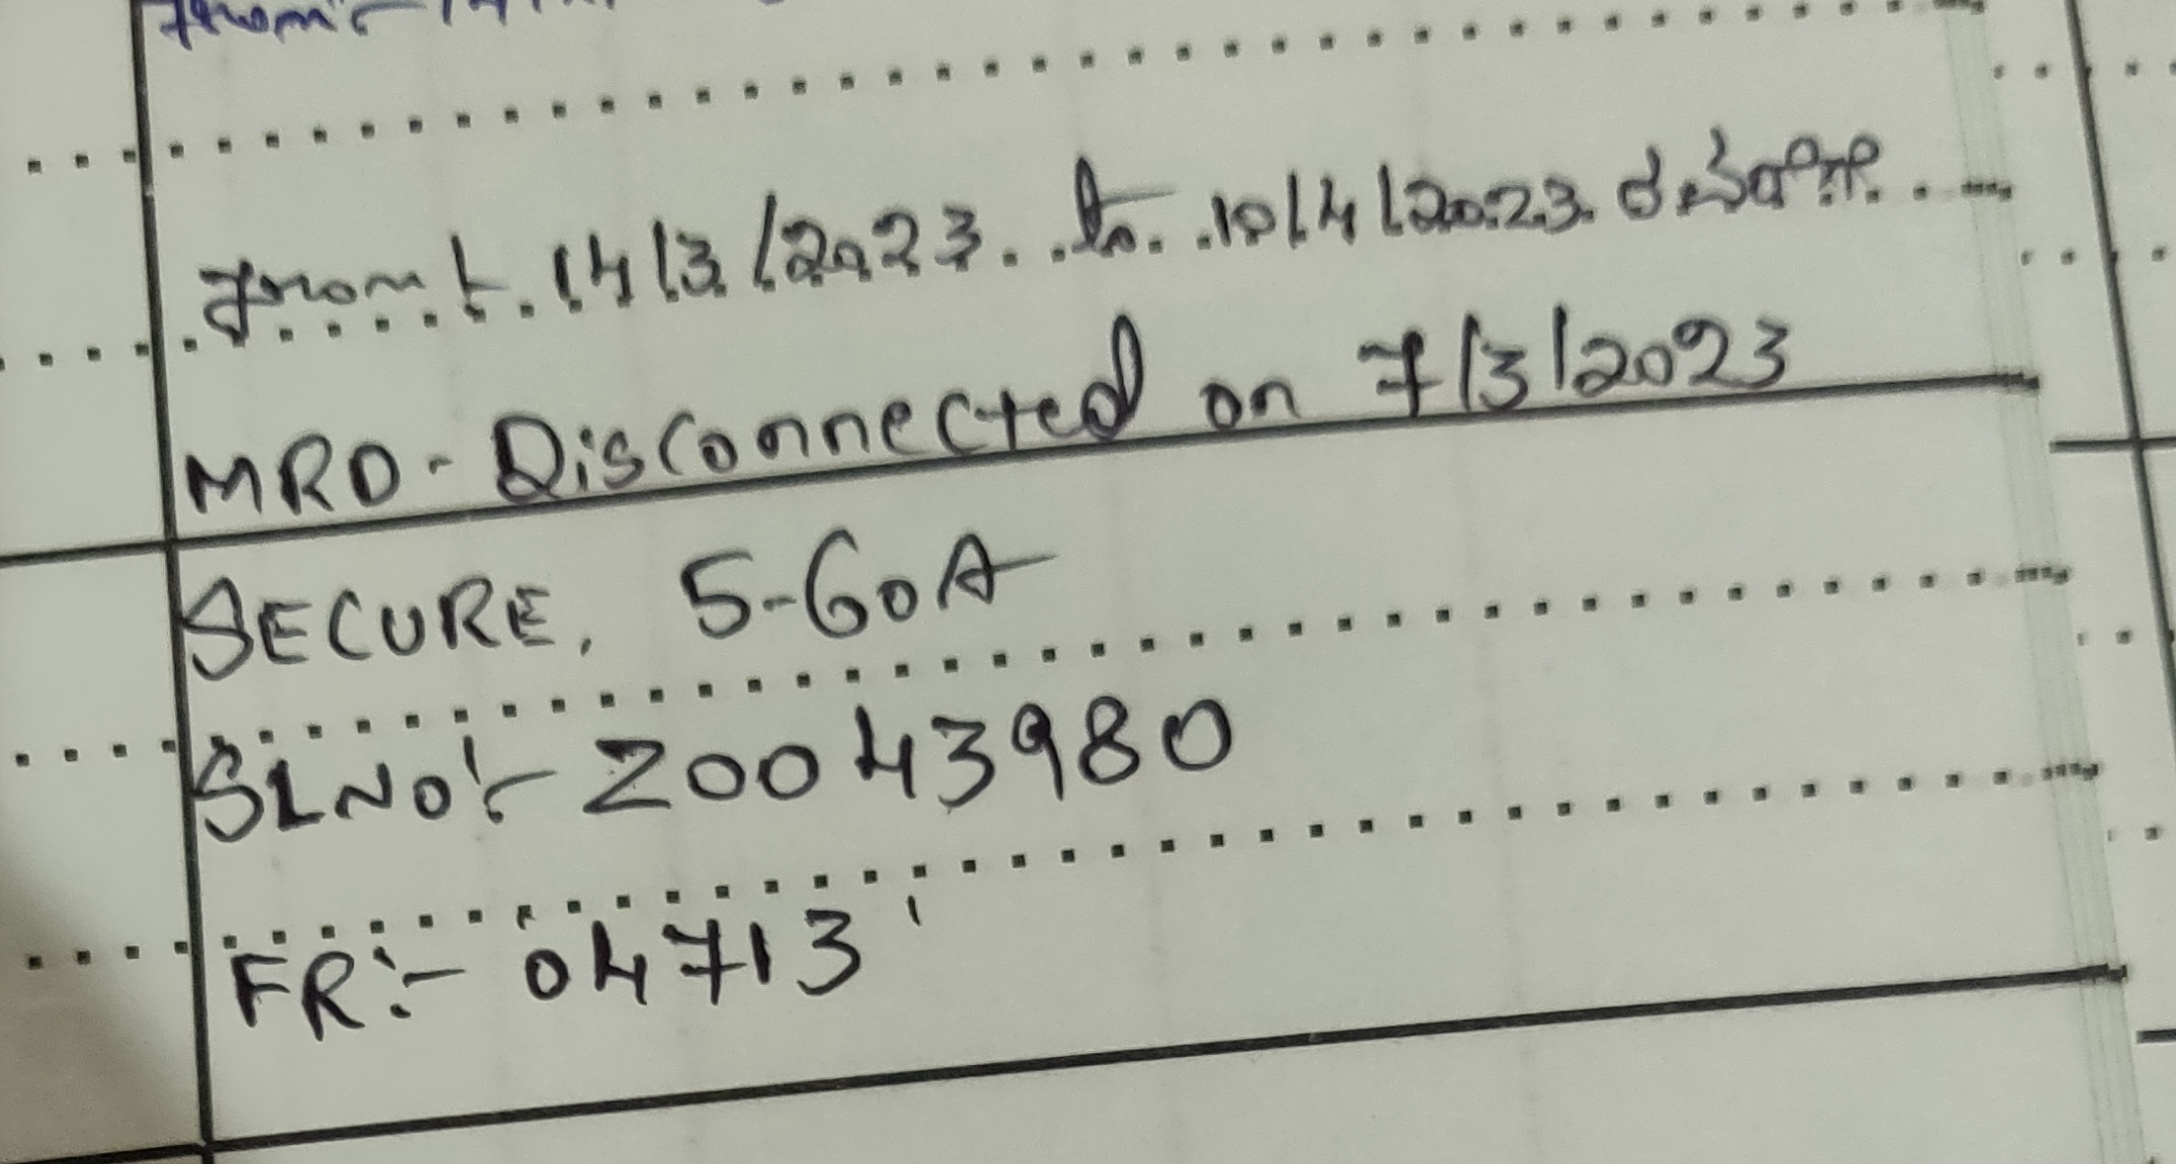 From:-
From:- 14/3/2023 to 10/4/2023 ರವರೆಗೆ
MRD - Disconnected on 7/3/2023
SECURE, 5-60A
SLNO:- Z0043980
FR:- 04713